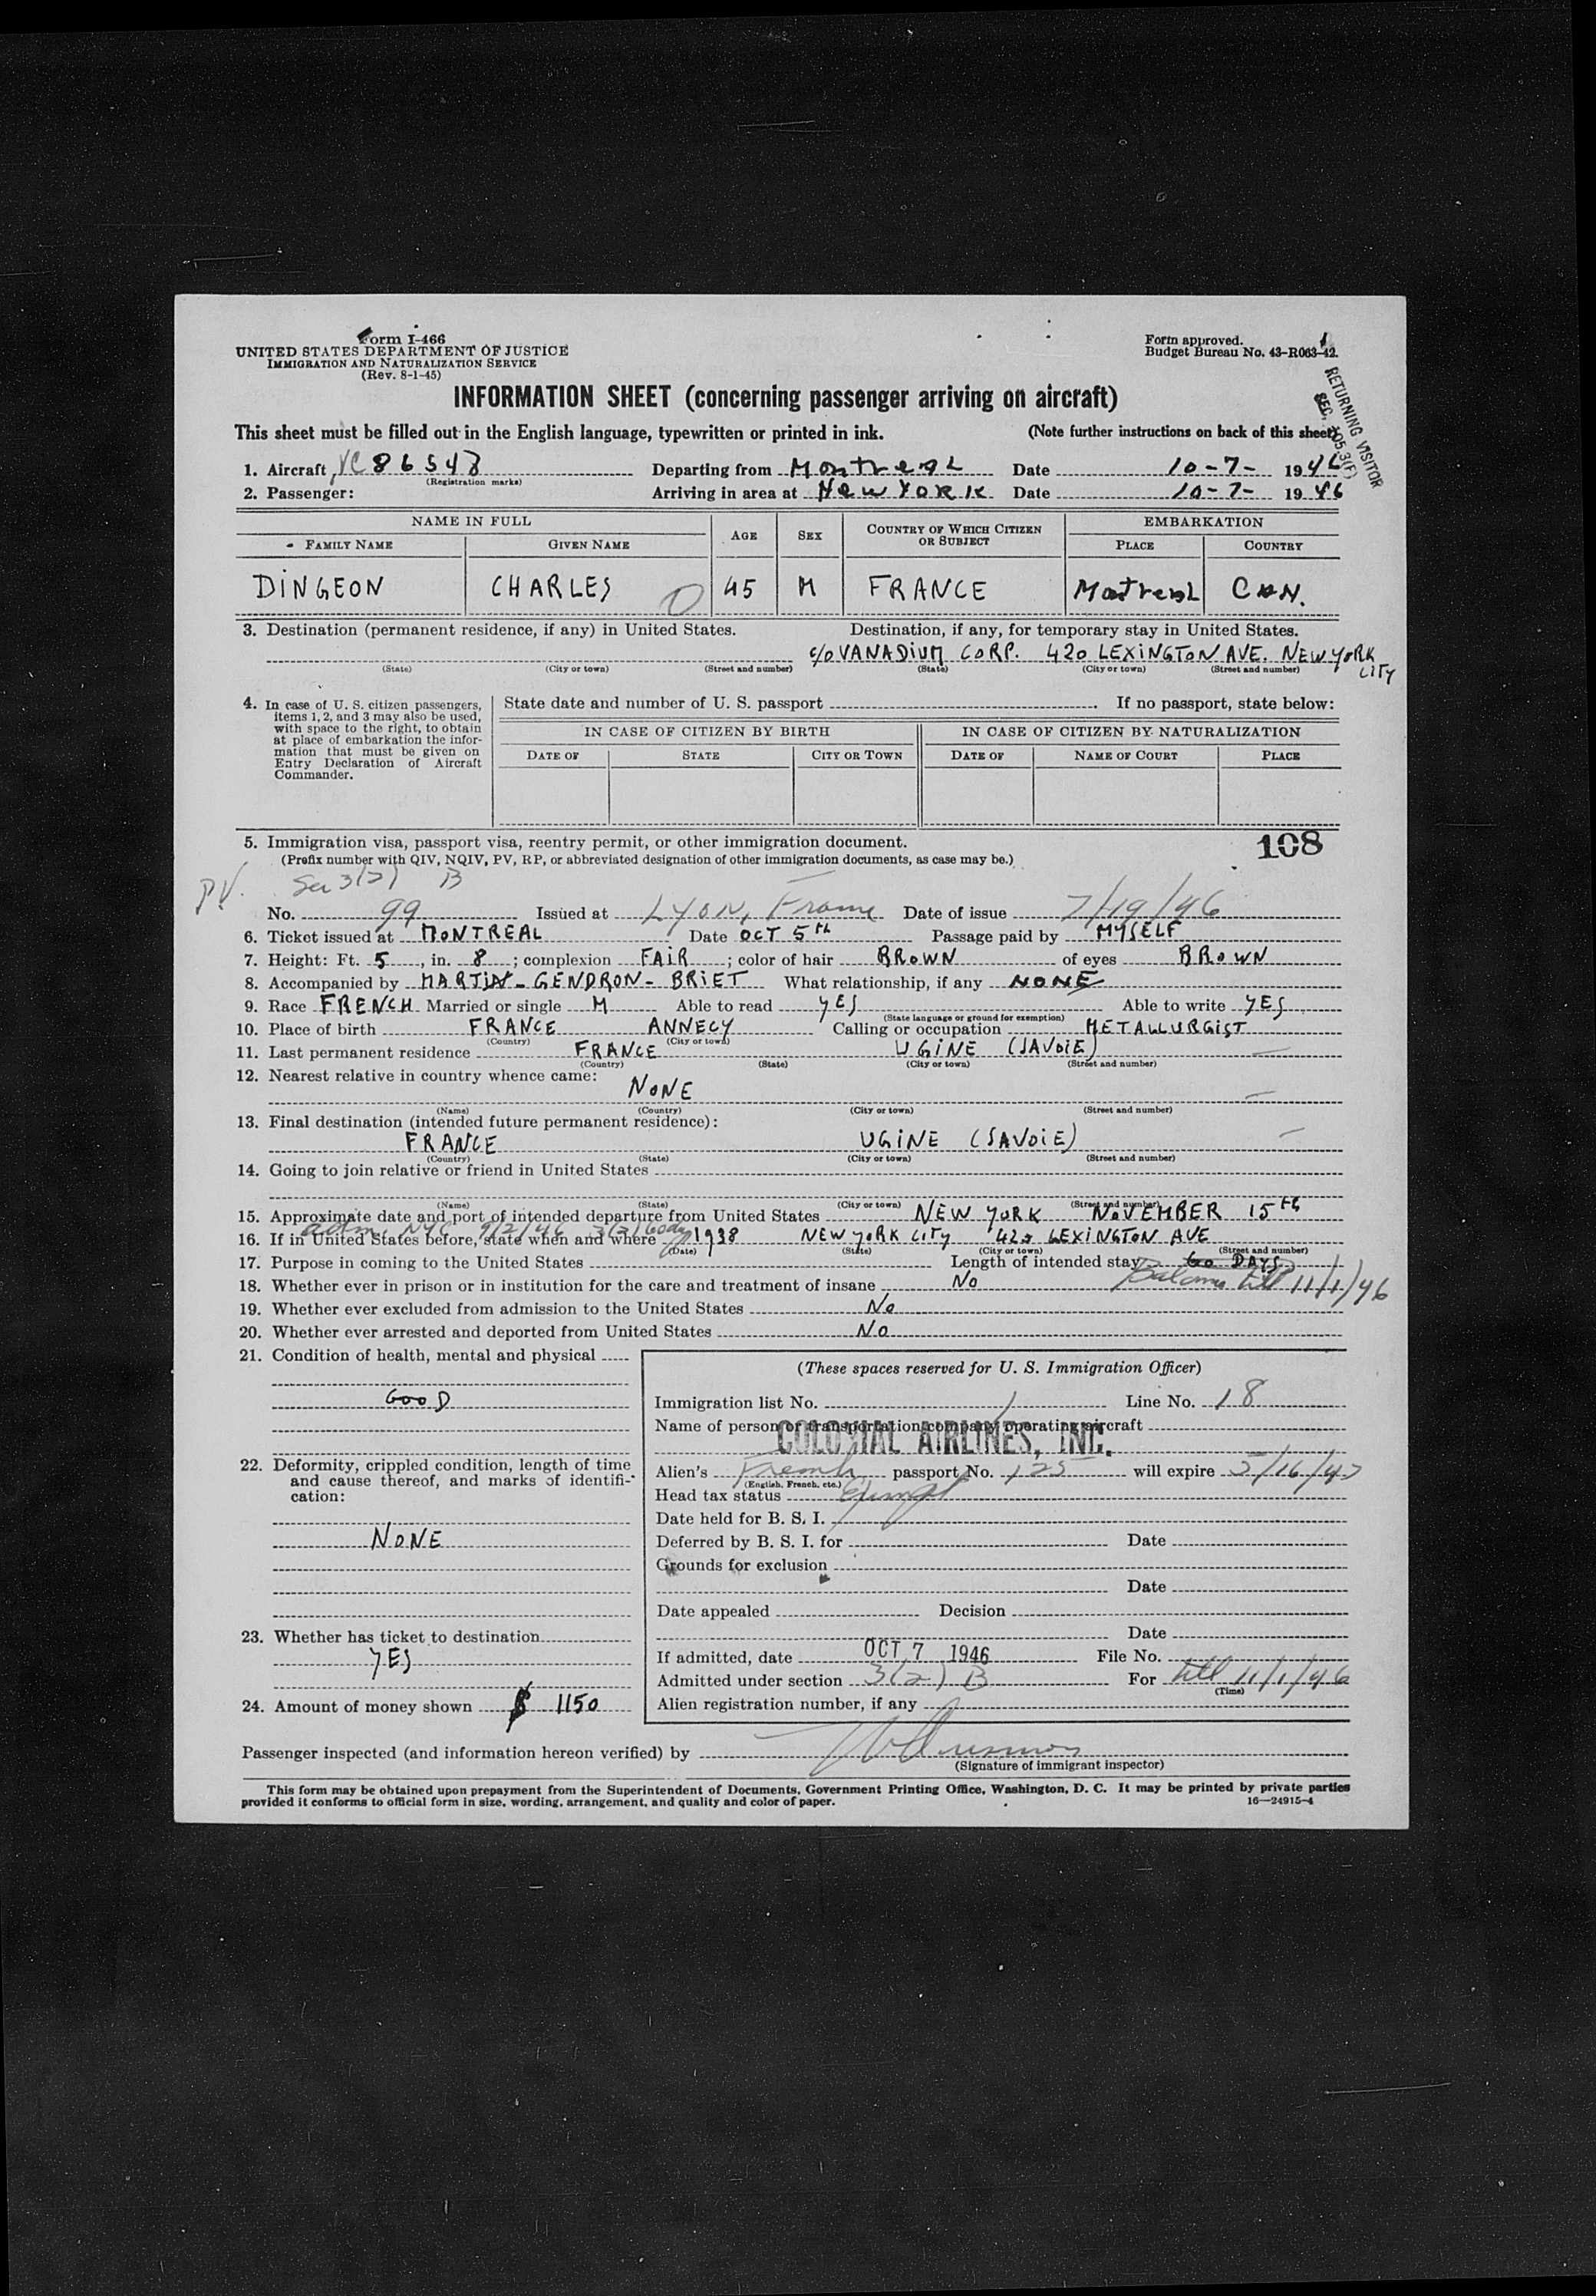 Form I-466
UNITED STATES DEPARTMENT OF JUSTICE
IMMIGRATION AND NATURALIZATION SERVICE
(Rev. 8-1-45)
Form approved.
Budget Bureau No. 43-R063-42.
RETURNING VISITOR
SEC. 105.3(F)
INFORMATION SHEET (concerning passenger arriving on aircraft)
This sheet must be filled out in the English language, typewritten or printed in ink. (Note further instructions on back of this sheet)
1. Aircraft NC 86543 Departing from Montreal Date 10-7- 1946
(Registration marks)
2. Passenger: Arriving in area at New York Date 10-7- 1946
NAME IN FULL AGE SEX COUNTRY OF WHICH CITIZEN OR SUBJECT EMBARKATION
FAMILY NAME GIVEN NAME PLACE COUNTRY
DINGEON CHARLES 45 M FRANCE Montreal CAN.
3. Destination (permanent residence, if any) in United States. Destination, if any, for temporary stay in United States.
c/o VANADIUM CORP. 420 LEXINGTON AVE. NEW YORK CITY
(State) (City or town) (Street and number) (State) (City or town) (Street and number)
4. In case of U. S. citizen passengers, items 1, 2, and 3 may also be used, with space to the right, to obtain at place of embarkation the information that must be given on Entry Declaration of Aircraft Commander.
State date and number of U. S. passport If no passport, state below:
IN CASE OF CITIZEN BY BIRTH IN CASE OF CITIZEN BY NATURALIZATION
DATE OF STATE CITY OR TOWN DATE OF NAME OF COURT PLACE
5. Immigration visa, passport visa, reentry permit, or other immigration document. 108
(Prefix number with QIV, NQIV, PV, RP, or abbreviated designation of other immigration documents, as case may be.)
P.V. Sec 3(2) B
No. 99 Issued at LYON, France Date of issue 7/19/46
6. Ticket issued at MONTREAL Date OCT 5th Passage paid by MYSELF
7. Height: Ft. 5, in. 8; complexion FAIR; color of hair BROWN of eyes BROWN
8. Accompanied by MARTIN - GENDRON - BRIET What relationship, if any NONE
9. Race FRENCH Married or single M Able to read YES Able to write YES
(State language or ground for exemption)
10. Place of birth FRANCE ANNECY Calling or occupation METALLURGIST
(Country) (City or town)
11. Last permanent residence FRANCE UGINE (SAVOIE)
(Country) (State) (City or town) (Street and number)
12. Nearest relative in country whence came:
NONE
(Name) (Country) (City or town) (Street and number)
13. Final destination (intended future permanent residence):
FRANCE UGINE (SAVOIE)
(Country) (State) (City or town) (Street and number)
14. Going to join relative or friend in United States
(Name) (State) (City or town) (Street and number)
15. Approximate date and port of intended departure from United States NEW YORK NOVEMBER 15th
adm. NYC 9/2/46 3(2) 60 dy
16. If in United States before, state when and where 1938 NEW YORK CITY 420 LEXINGTON AVE
(Date) (State) (City or town) (Street and number)
17. Purpose in coming to the United States Length of intended stay 60 DAYS
Balance till 11/1/46
18. Whether ever in prison or in institution for the care and treatment of insane No
19. Whether ever excluded from admission to the United States No
20. Whether ever arrested and deported from United States No
21. Condition of health, mental and physical
GOOD
22. Deformity, crippled condition, length of time and cause thereof, and marks of identification:
NONE
23. Whether has ticket to destination
YES
24. Amount of money shown $ 1150
(These spaces reserved for U. S. Immigration Officer)
Immigration list No. 1 Line No. 18
Name of person or transportation company operating aircraft
COLONIAL AIRLINES, INC.
Alien's French passport No. 125 will expire 5/16/47
(English, French, etc.)
Head tax status Exempt
Date held for B. S. I.
Deferred by B. S. I. for Date
Grounds for exclusion
Date
Date appealed Decision
Date
If admitted, date OCT 7 1946 File No.
Admitted under section 3(2) B For till 11/1/46
(Time)
Alien registration number, if any
Passenger inspected (and information hereon verified) by
(Signature of immigrant inspector)
This form may be obtained upon prepayment from the Superintendent of Documents, Government Printing Office, Washington, D. C. It may be printed by private parties
provided it conforms to official form in size, wording, arrangement, and quality and color of paper. 16—24915-4